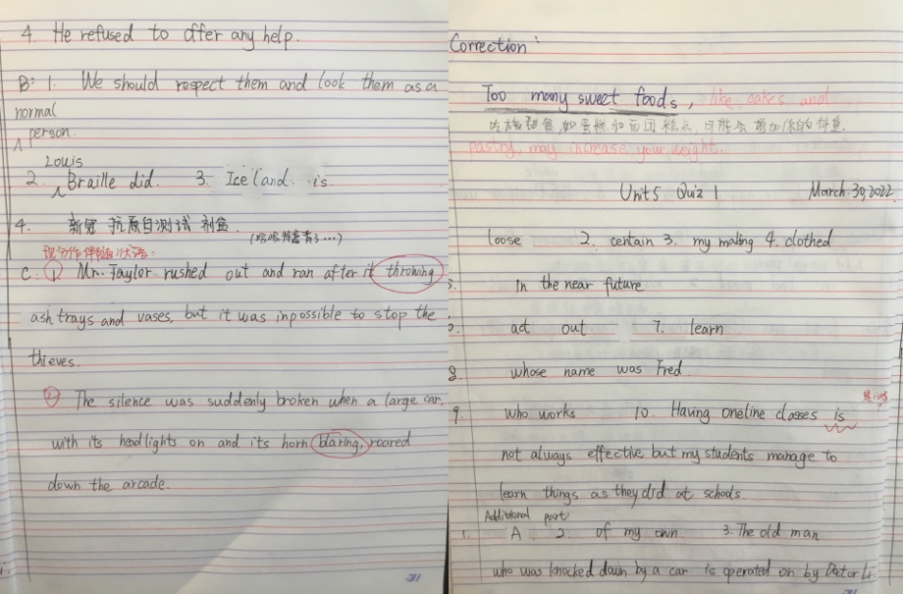 4. He refused to offer any help.
B: 1. We should respect them and look them as a
normal
person.
Louis
2. Braille did. 3. Iceland. is
4. 新冠 抗原自测试 剂盒.
C. ① Mr. Taylor rushed out and ran after it throwing
ash trays and vases, but it was inpossible to stop the
thieves.
② The silence was suddenly broken when a large car.
with its headlights on and its horn blaring, roared
down the arcade.
Correction:
Too many sweet foods, like cakes and
pastry, may increase your weight.
Unit 5 Quiz 1 March. 30, 2022
loose 2. certain 3. my making 4. clothed
in the near future
act out 7. learn
8. whose name was Fred
9. who works 10. Having oneline classes is
not always effective but my students manage to
learn things as they did at schools.
Additional part
1. A. 2. of my own 3. The old man
who was knocked down by a car is operated on by Doctor Li.